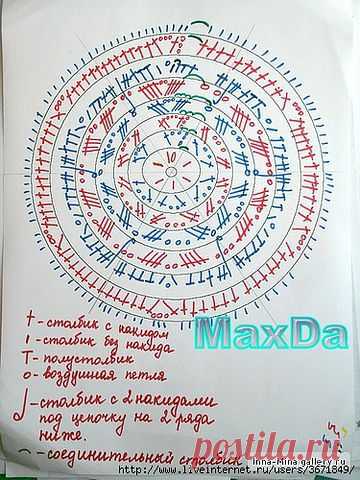 MaxDa
† - столбик с накидом
ı - столбик без накида
T - полустолбик
о - воздушная петля
столбик с 2 накидами
под цепочку на 2 ряда
ниже.
⌒ - соединительный столбик
постила.ru
Inna-Mina.gallery.ru
http://www.liveinternet.ru/users/3671849/